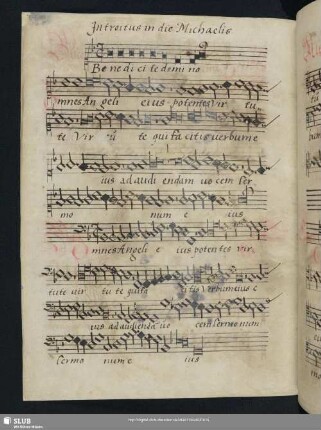 Introitus in die Michaelis
Be ne di ci te domi no
mnes An geli eius potentes vir tu
te vir tu te qui facitis verbum e
ius ad audi endam vo cem ser
mo num e ius
mnes Angeli e ius potentes vir
tute vir tu te qui fa citis verbum eius e
ius ad audienda vo cem sermonum
sermo num e ius
SLUB